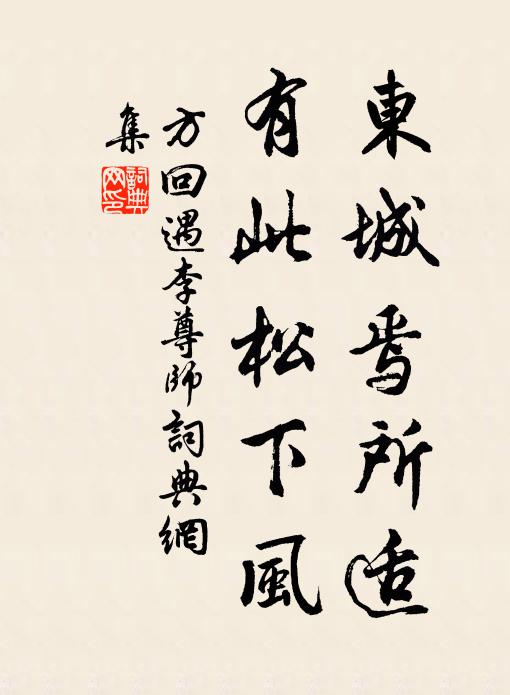 東城焉所适
有此松下風
方回遇李尊師詞典網
集
詞典
网印